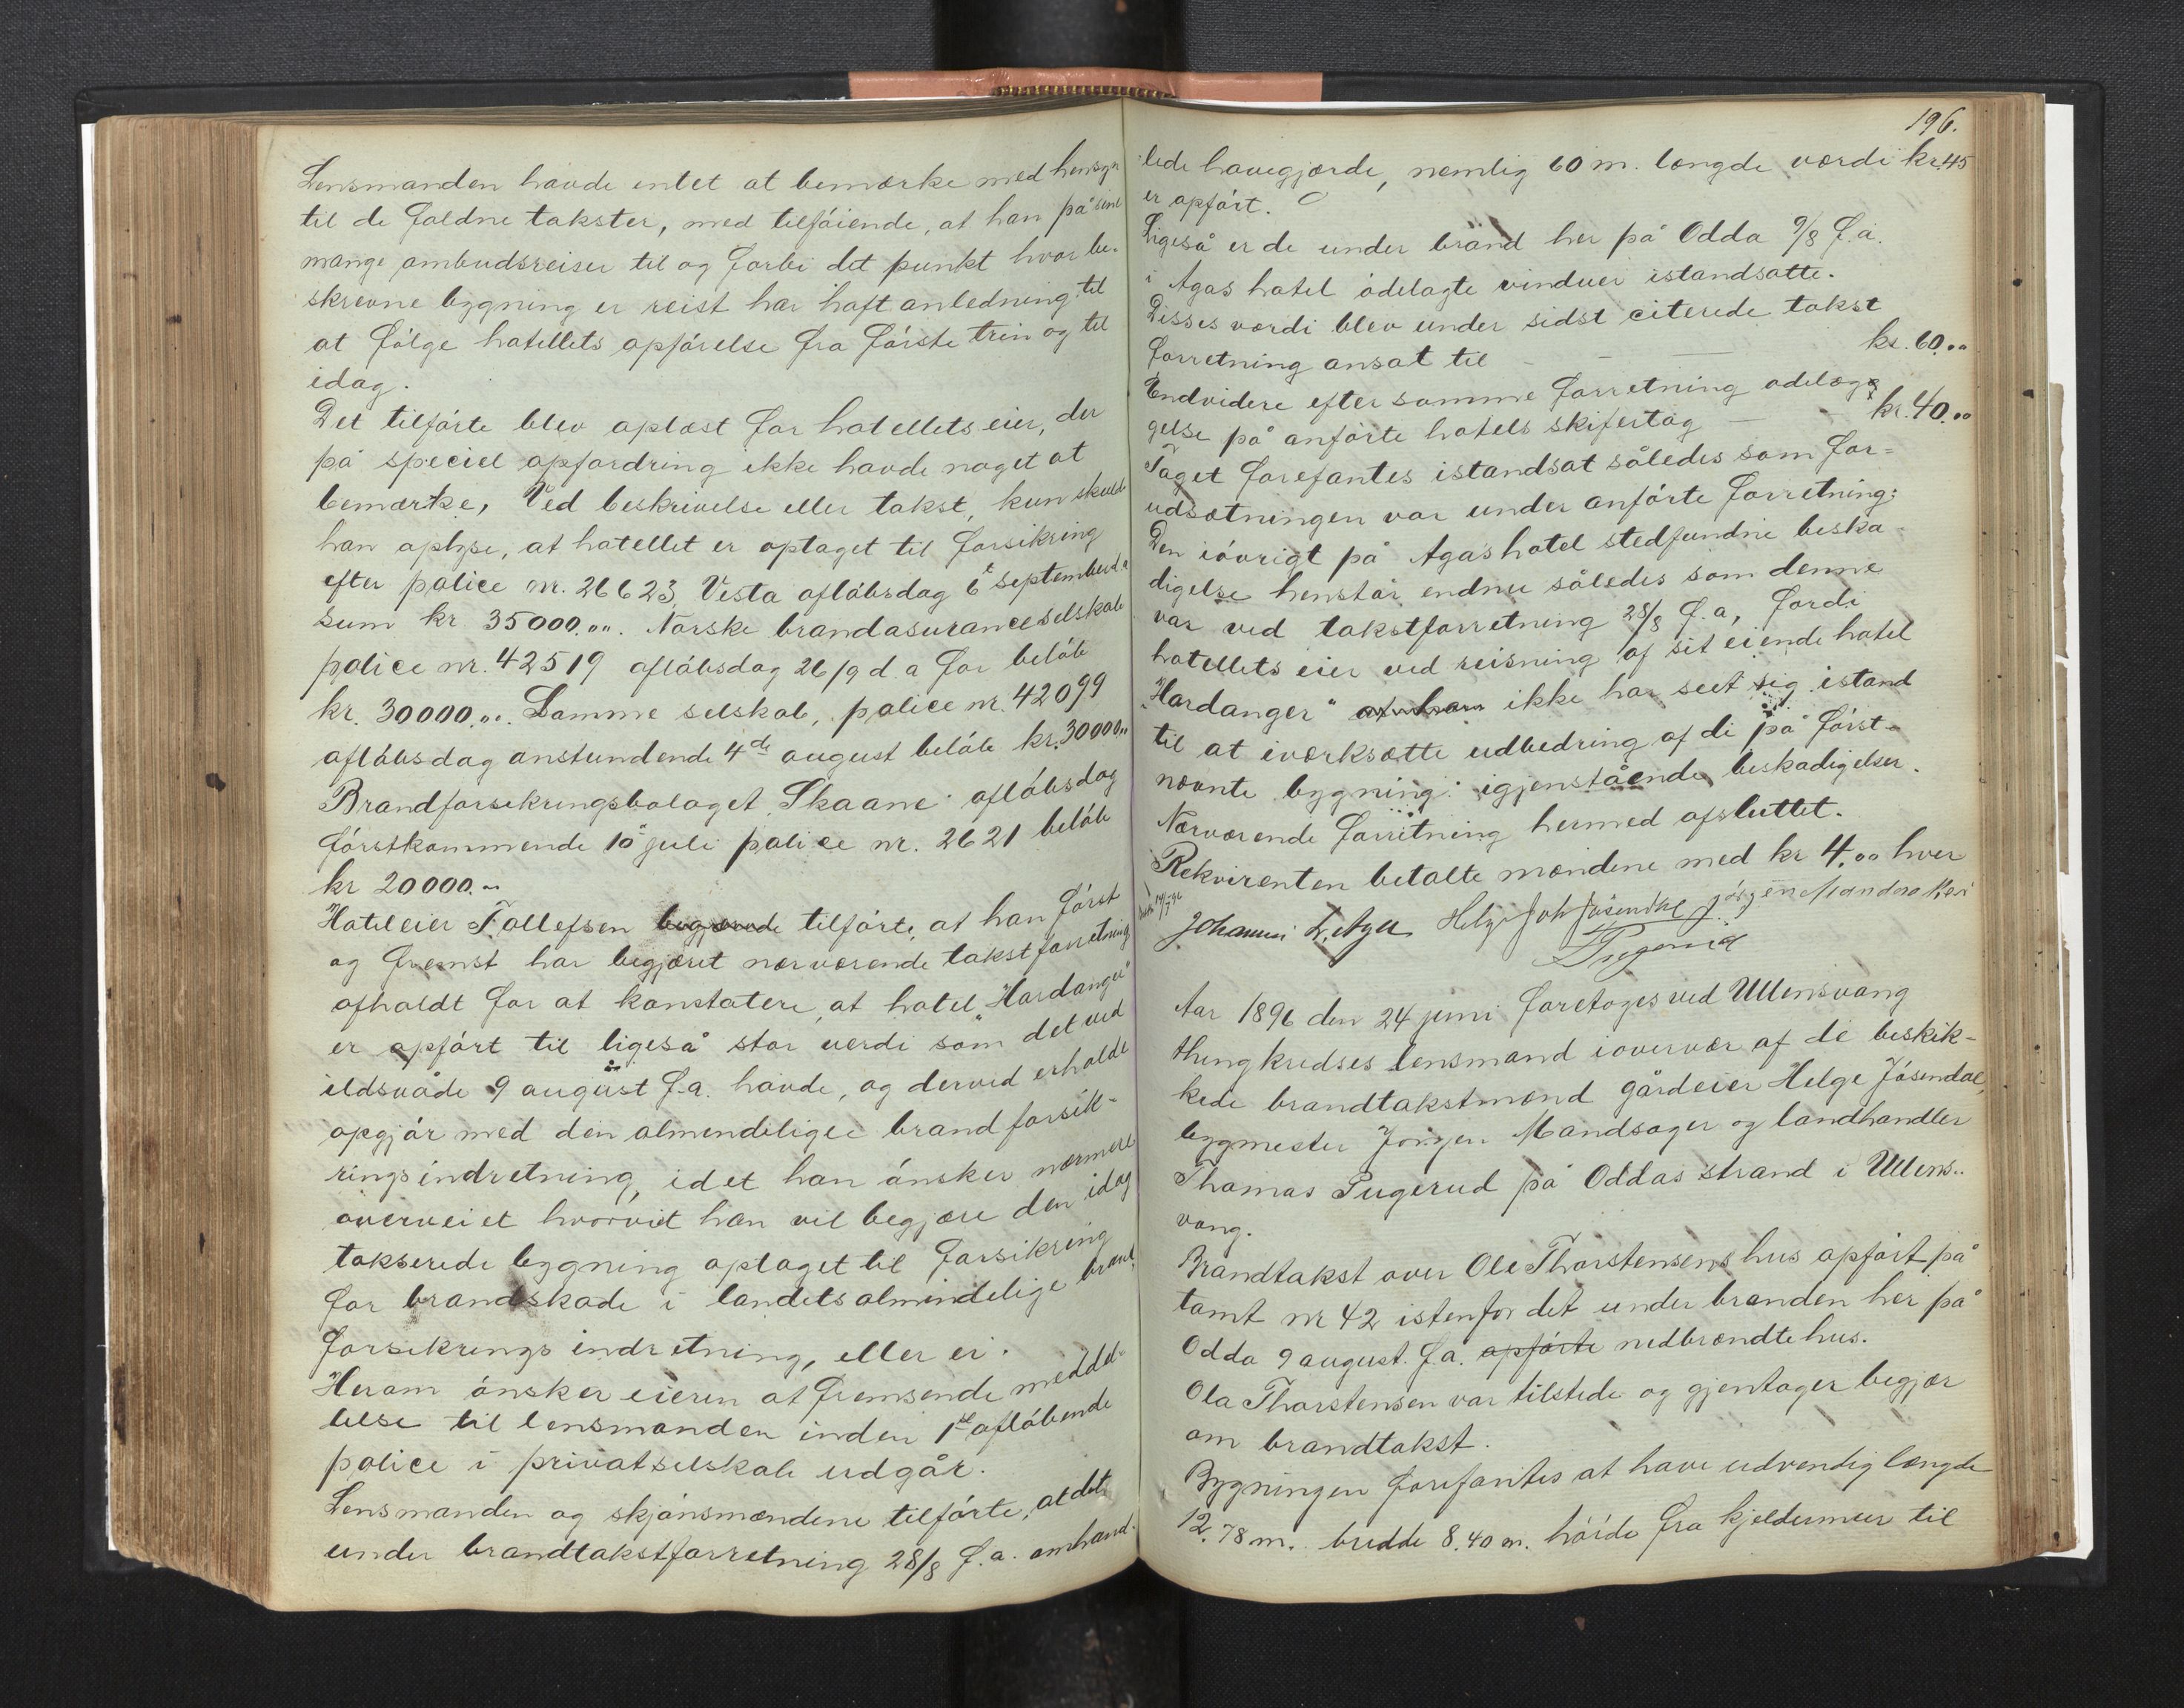 Lensmanden havde intet at bemærke med hensyn
til de faldne takster, med tilføiende, at han på sine
mange ombudsreiser til og forbi det punkt hvor be-
skrevne bygning er reist har haft anledning til
at følge hotellets opførelse fra første trin og til
idag.
Det tilførte blev oplæst for hotellets eier, der
på speciel opfordring ikke havde noget at
bemærke, Ved beskrivelse eller takst, kun skulde
han oplyse, at hotellet er optaget til forsikring
efter police nr. 26623, Vesta afløbsdag 6 september d.a
sum kr 35000.00. Norske brandasuranceselskab
police nr. 42519 afløbsdag 26/9 d.a for beløb
kr. 30000.00. Samme selskab, police nr. 42099
afløbsdag anstundende 4de august beløb kr. 30000.00
Brandforsekringsbolaget Skaane afløbsdag
førstkommende 10 juli police nr. 2621 beløb
kr 20000.00
Hoteleier Tollefsen begjærede tilførte, at han først
og fremst har begjæret nærværende takstforretning
afholdt for at konstatere, at hotel "Hardanger"
er opført til ligeså stor verdi som det ved
ildsvåde 9 august f.a. havde, og derved erholde
opgjør med den almendelige brandforsik-
ringsindretning, idet han ønsker nærmere
overveiet hvorvidt han vil begjære den idag
takserede bygning optaget til forsikring
for brandskade i landets almindelige brand
forsikrings indretning, eller ei.
Herom ønsker eieren at fremsende meddel-
lelse til lensmanden inden 1ste afløbende
police i privatselskab udgår.
Lensmanden og skjønsmændene tilførte, at det
under brandtakstforretning 28/8 f.a. omhand-
196.
lede havegjærde, nemlig 60 m. længde værdi kr 45
er opført.
Ligeså er de under brand her på Odda 9/8 f.a.
i Agas hotel ødelagte vinduer istandsatte.
Disses værdi blev under sidst citerede takst
forretning ansat til - - - kr. 60.00
Endvidere efter samme forretning ødelæg
gelse på anførte hotels skifertag - - kr. 40.00
Taget forefantes istandsat således som for-
udsætningen var under anførte forretning.
Den iøvrigt på Agas hotel stedfundne beska-
digelse henstår endnu således som denne
var ved takstforretning 28/8 f.a, fordi
hotellets eier ved reisning af sit eiende hotel
"Hardanger" ikke har seet sig istand
til at iværksætte udbedring af de på først-
nævnte bygning igjenstående beskadigelser.
Nærværende forretning hermed afsluttet.
Rekvirenten betalte mændene med kr 4.00 hver
Johannes L. Aga Helge Joh Jøsendal Jørgen Mandsaker
T Pugerud
Aar 1896 den 24 juni foretoges ved Ullensvang
thingkredses lensmand iovervær af de beskik-
kede brandtakstmænd gårdeier Helge Jøsendal,
bygmester Jørgen Mandsager og landhandler
Thomas Pugerud på Oddas strand i Ullens-
vang.
Brandtakst over Ole Thorstensens hus opført på
tomt nr 42 istenfor det under branden her på
Odda 9 august. f.a. opførte nedbrændte hus.
Ola Thorstensen var tilstede og gjentager begjær
om brandtakst.
Bygningen forefantes at have udvendig længde
12.78 m. bredde 8.40 m. høide fra kjeldermur til